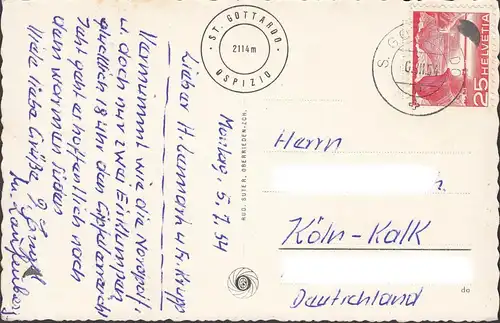 Montag, 5.7.54
Lieber H. Lennartz u. Fr. Krupp
Vermummt wie die Nordpol,
u. doch nur zwei Eisklumpen
glücklich 18 Uhr den Gipfel erreicht
Jetzt geht es hoffentlich nach
dem warmen Süden
Viele liebe Grüße
· ST. GOTTARDO ·
2114m
OSPIZIO
RUD. SUTER, OBERRIEDEN-ZCH.
HELVETIA
25
Herrn
Köln-Kalk
Deutschland
do